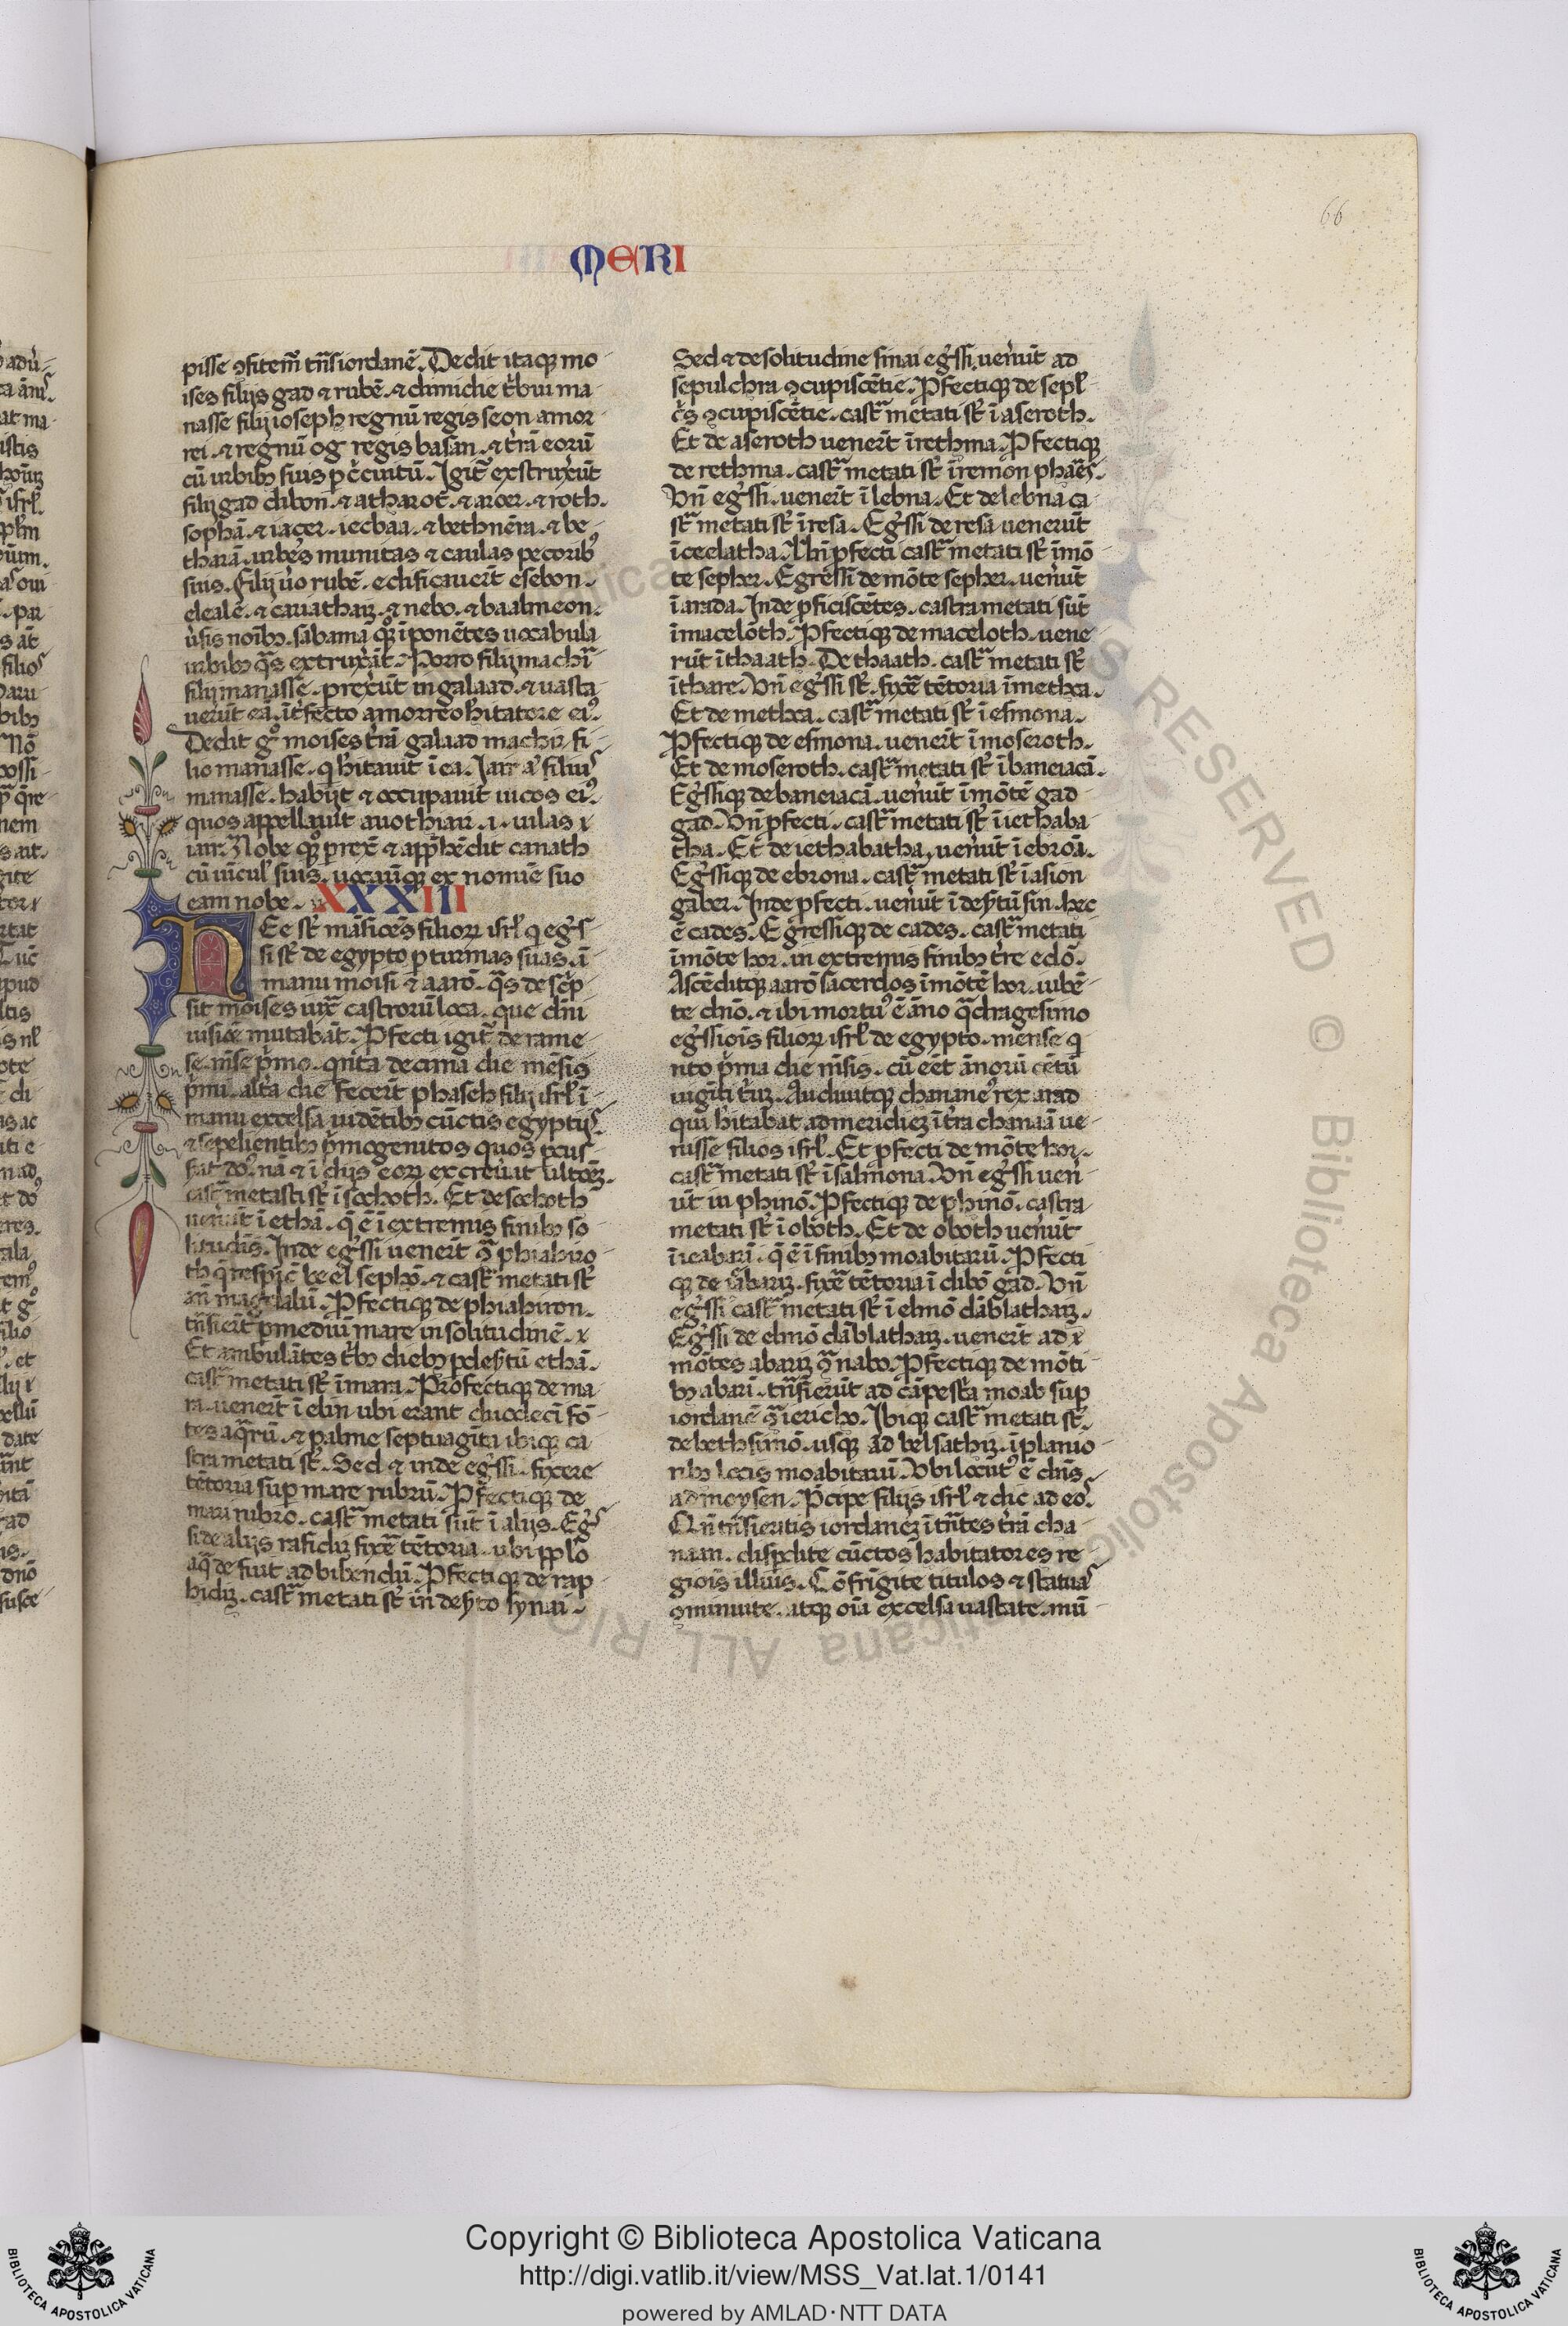 66
MERI
pisse ꝯfitem᷑ tn̄siordanē. Dedit itaqꝫ mo
ises filijs gad ⁊ rubē. ⁊ dimidie t'bui ma
nasse filij ioseph regnū regis seon amor
rei. ⁊ regnū og regis basan. ⁊ t'rā eorū
cū urbibꝫ suis ꝑ c'cuitū. Igit᷑ exstruxer̄t
filij gad dibon. ⁊ atharot. ⁊ aroer. ⁊ roth.
sophā. ⁊ iaçer. iecbaa. ⁊ bethnēra. ⁊ be
tharā. urbēs munitas ⁊ caulas pecoribꝰ
suis. Filij u'o rubē. edificauer̄t esebon.
elealē. ⁊ cariathaiꝫ. ⁊ nebo. ⁊ baalmeon.
u'sis noībꝫ. sabama qꝫ īponētes uocabula
urbibꝫ q̄s extruxer̄t. Porro filij machī
filij manasse. prexer̄t in galaad. ⁊ uasta
uer̄t eā. īt'fecto amorreo hītatore eiꝰ.
Dedit gͦ moises t'rā galaad machir fi
lio manasse. q hītauit ī ea. Iair aͭ filiuˢ
manasse. habijt ⁊ occupauit uicos eiꝰ.
quos appellauit auothiair .i. uilas
iair. Nobe qꝫ ꝑrexͭ ⁊ app̄hēdit canath
cū uicul' suis. uocauitqꝫ ex nomīe suo
eam nobe. XXXIII
HEe st᷑ māsiōēs filioꝝ isrl' q eg'ſ
si st᷑ de egypto ꝑ turmas suas. ī
manu moisi ⁊ aarō. q̄s desc'p
sit moises iux̄ castrorū loca. que dn̄i
iussiōe mutabāt. Ꝓfecti igit᷑ de rame
se. mēse p'mo. qnta decima die mēsis
p'mi. alt'a die fecer̄t phaseh filij isrl' ī
manu excelsa uidētibꝫ cūctis egyptijˢ
⁊ sepelientibꝫ p'mogenitos quos ꝑcus
sat dō. nā ⁊ ī dijs eoꝝ excreuat ultoēꝫ.
cast᷑ metasti st᷑ ī sochoth. Et de sochoth
uener̄t ī ethā. q̄ ē ī extremis finibꝫ so
litudīs. Inde eg'ssi uener̄t ꝯ̄ phiahiro
th q̄ respīc̄ beel sephō. ⁊ cast᷑ metati st᷑
an̄ magdalū. Ꝓfectiqꝫ de phiahiron.
tn̄sier̄t ꝑ mediū mare in solitudinē.
Et ambulātes t'bꝫ diebꝫ ꝑ des'tū ethā.
cast᷑ metati st᷑ ī mara. Profectiqꝫ de ma
ra. uener̄t ī elin ubi erant duodeci fō
tes aq̄rū. ⁊ palme septuagīta ibiqꝫ ca
stra metati st᷑. Sed ⁊ inde eg'ssi. fixere
tētoria suꝑ mare rubrū. Ꝓfectiqꝫ de
mari rubro. cast᷑ metati sūt ī alijs. Eg'ˢ
si de alijs rafidiꝫ fixē tētoria. ubi ppl'o
aq̄ de fuit ad bibendū. Ꝓfectiqꝫ de rap
hidiꝫ. cast᷑ metati st᷑ in des'to synai.
Sed ⁊ de solitudine sinai eg'ssi. uener̄t ad
sepulchra ꝯcupiscētie. Ꝓfectiqꝫ de sepl'
c's ꝯcupiscētie. cast᷑ metati st᷑ ī aseroth.
Et de aseroth uener̄t ī rethma. Ꝓfectiqꝫ
de rethma. cast᷑ metati st᷑ ī remon phaēs.
Vn̄ eg'ssi. uener̄t ī lebna. Et de lebna ca
st᷑ metati st᷑ ī resa. Eg'ssi de resa uenerūt
ī ceelatha. Vn̄ ꝓfecti cast᷑ metati st᷑ ī mō
te sepher. Egressi de mōte sepher. uener̄t
ī arada. Inde ꝓficiscētes. castra metati sūt
ī maceloth. Ꝓfectiqꝫ de maceloth. uene
rūt ī thaath. De thaath. cast᷑ metati st᷑
ī thare. Vn̄ eg'ssi st᷑. fixē tētoria ī methca.
Et de methca. cast᷑ metati st᷑ ī esmona.
Ꝓfectiqꝫ de esmona. uener̄t ī moseroth.
Et de moseroth. cast᷑ metati st᷑ ī baneiacā.
Eg'ssiqꝫ de baneiacā. uener̄t ī mōtē gad
gad. Vn̄ ꝓfecti. cast᷑ metati st᷑ ī iethaba
tha. Et de iethabatha, uener̄t ī ebronā.
Eg'ssiqꝫ de ebrona. cast᷑ metati st᷑ ī asion
gaber. Inde ꝓfecti. uener̄t ī des'tū sin. hec
ē cades. Egressiqꝫ de cades. cast᷑ metati
ī mōte hor. in extremis finibꝫ t're edō.
Ascēditqꝫ aarō sacerdos ī mōtē hor. iubē
te dn̄o. ⁊ ibi mortuꝰ ē āno q̄dragesimo
eg'ssiōis filioꝝ isrl' de egypto. mense q
nto p'ma die mēsis. cū eēt ānorū cētū
uigiti t'uꝫ. Audiuitqꝫ chananeꝰ rex arad
qui hītabat ad meridieꝫ ī t'ra chanaā ue
nisse filios isrl'. Et ꝓfecti de mōte hor.
cast᷑ metati st᷑ ī salmona. Vn̄ eg'ssi uen'
ūt in phinō. Ꝓfectiqꝫ de phinō. castra
metati st᷑ ī oboth. Et de oboth uener̄t
ī ieabarī. q̄ ē ī finibꝫ moabitarū. Ꝓfecti
qꝫ de iabariꝫ. fixē tētoria ī dibō gad. Vn̄
eg'ssi cast᷑ metati st᷑ ī elmō dāblathaiꝫ.
Eg'ssi de elmō dāblathaiꝫ. uener̄t ad
mōtes abariꝫ ꝯ̄ nabo. Ꝓfectiqꝫ de mōti
bꝫ abarī. tn̄sierūt ad cāpest'a moab suꝑ
iordanē ꝯ̄ iericho. Ibiqꝫ cast᷑ metati st᷑.
de bethsimō. usqꝫ ad belsathiꝫ. ī planio
ribꝫ locis moabitarū. Vbi locūtꝰ ē dn̄s
ad moysen. P'cipe filijs isrl' ⁊ dic ad eoˢ.
Qn̄ tn̄sieritis iordaneꝫ ītn̄tes t'rā cha
naan. disꝑdite cūctos habitatores re
giōis illius. Cōfrīgite titulos ⁊ statuaˢ
ꝯminuite. atqꝫ oīa excelsa uastate. mū
Copyright © Biblioteca Apostolica Vaticana
http://digi.vatlib.it/view/MSS_Vat.lat.1/0141
powered by AMLAD·NTT DATA